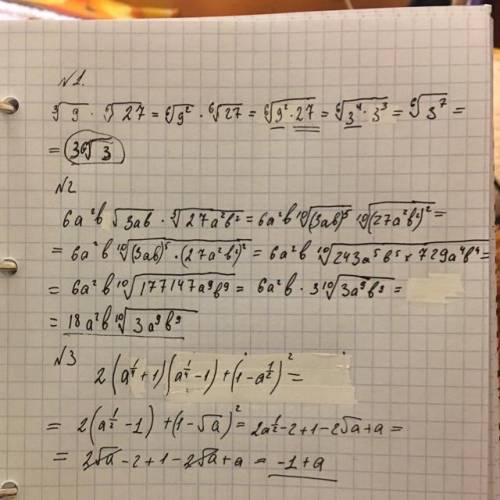 №1.
∛9 · ⁶√27 = ⁶√9² · ⁶√27 = ⁶√9² · 27 = ⁶√3⁴ · 3³ = ⁶√3⁷ =
= 3⁶√3
№2
6a²b √3ab · ⁵√27a²b² = 6a²b ¹⁰√(3ab)⁵ ¹⁰√(27a²b²)² =
= 6a²b ¹⁰√(3ab)⁵ · (27a²b²)² = 6a²b ¹⁰√243a⁵b⁵ × 729a⁴b⁴ =
= 6a²b ¹⁰√177147a⁹b⁹ = 6a²b · 3 ¹⁰√3a⁹b⁹ =
= 18a²b ¹⁰√3a⁹b⁹
№3
2(a^¼ + 1)(a^¼ - 1) + (1 - a^½)² =
= 2(a^½ - 1) + (1 - √a)² = 2a^½ - 2 + 1 - 2√a + a =
= 2√a - 2 + 1 - 2√a + a = -1 + a